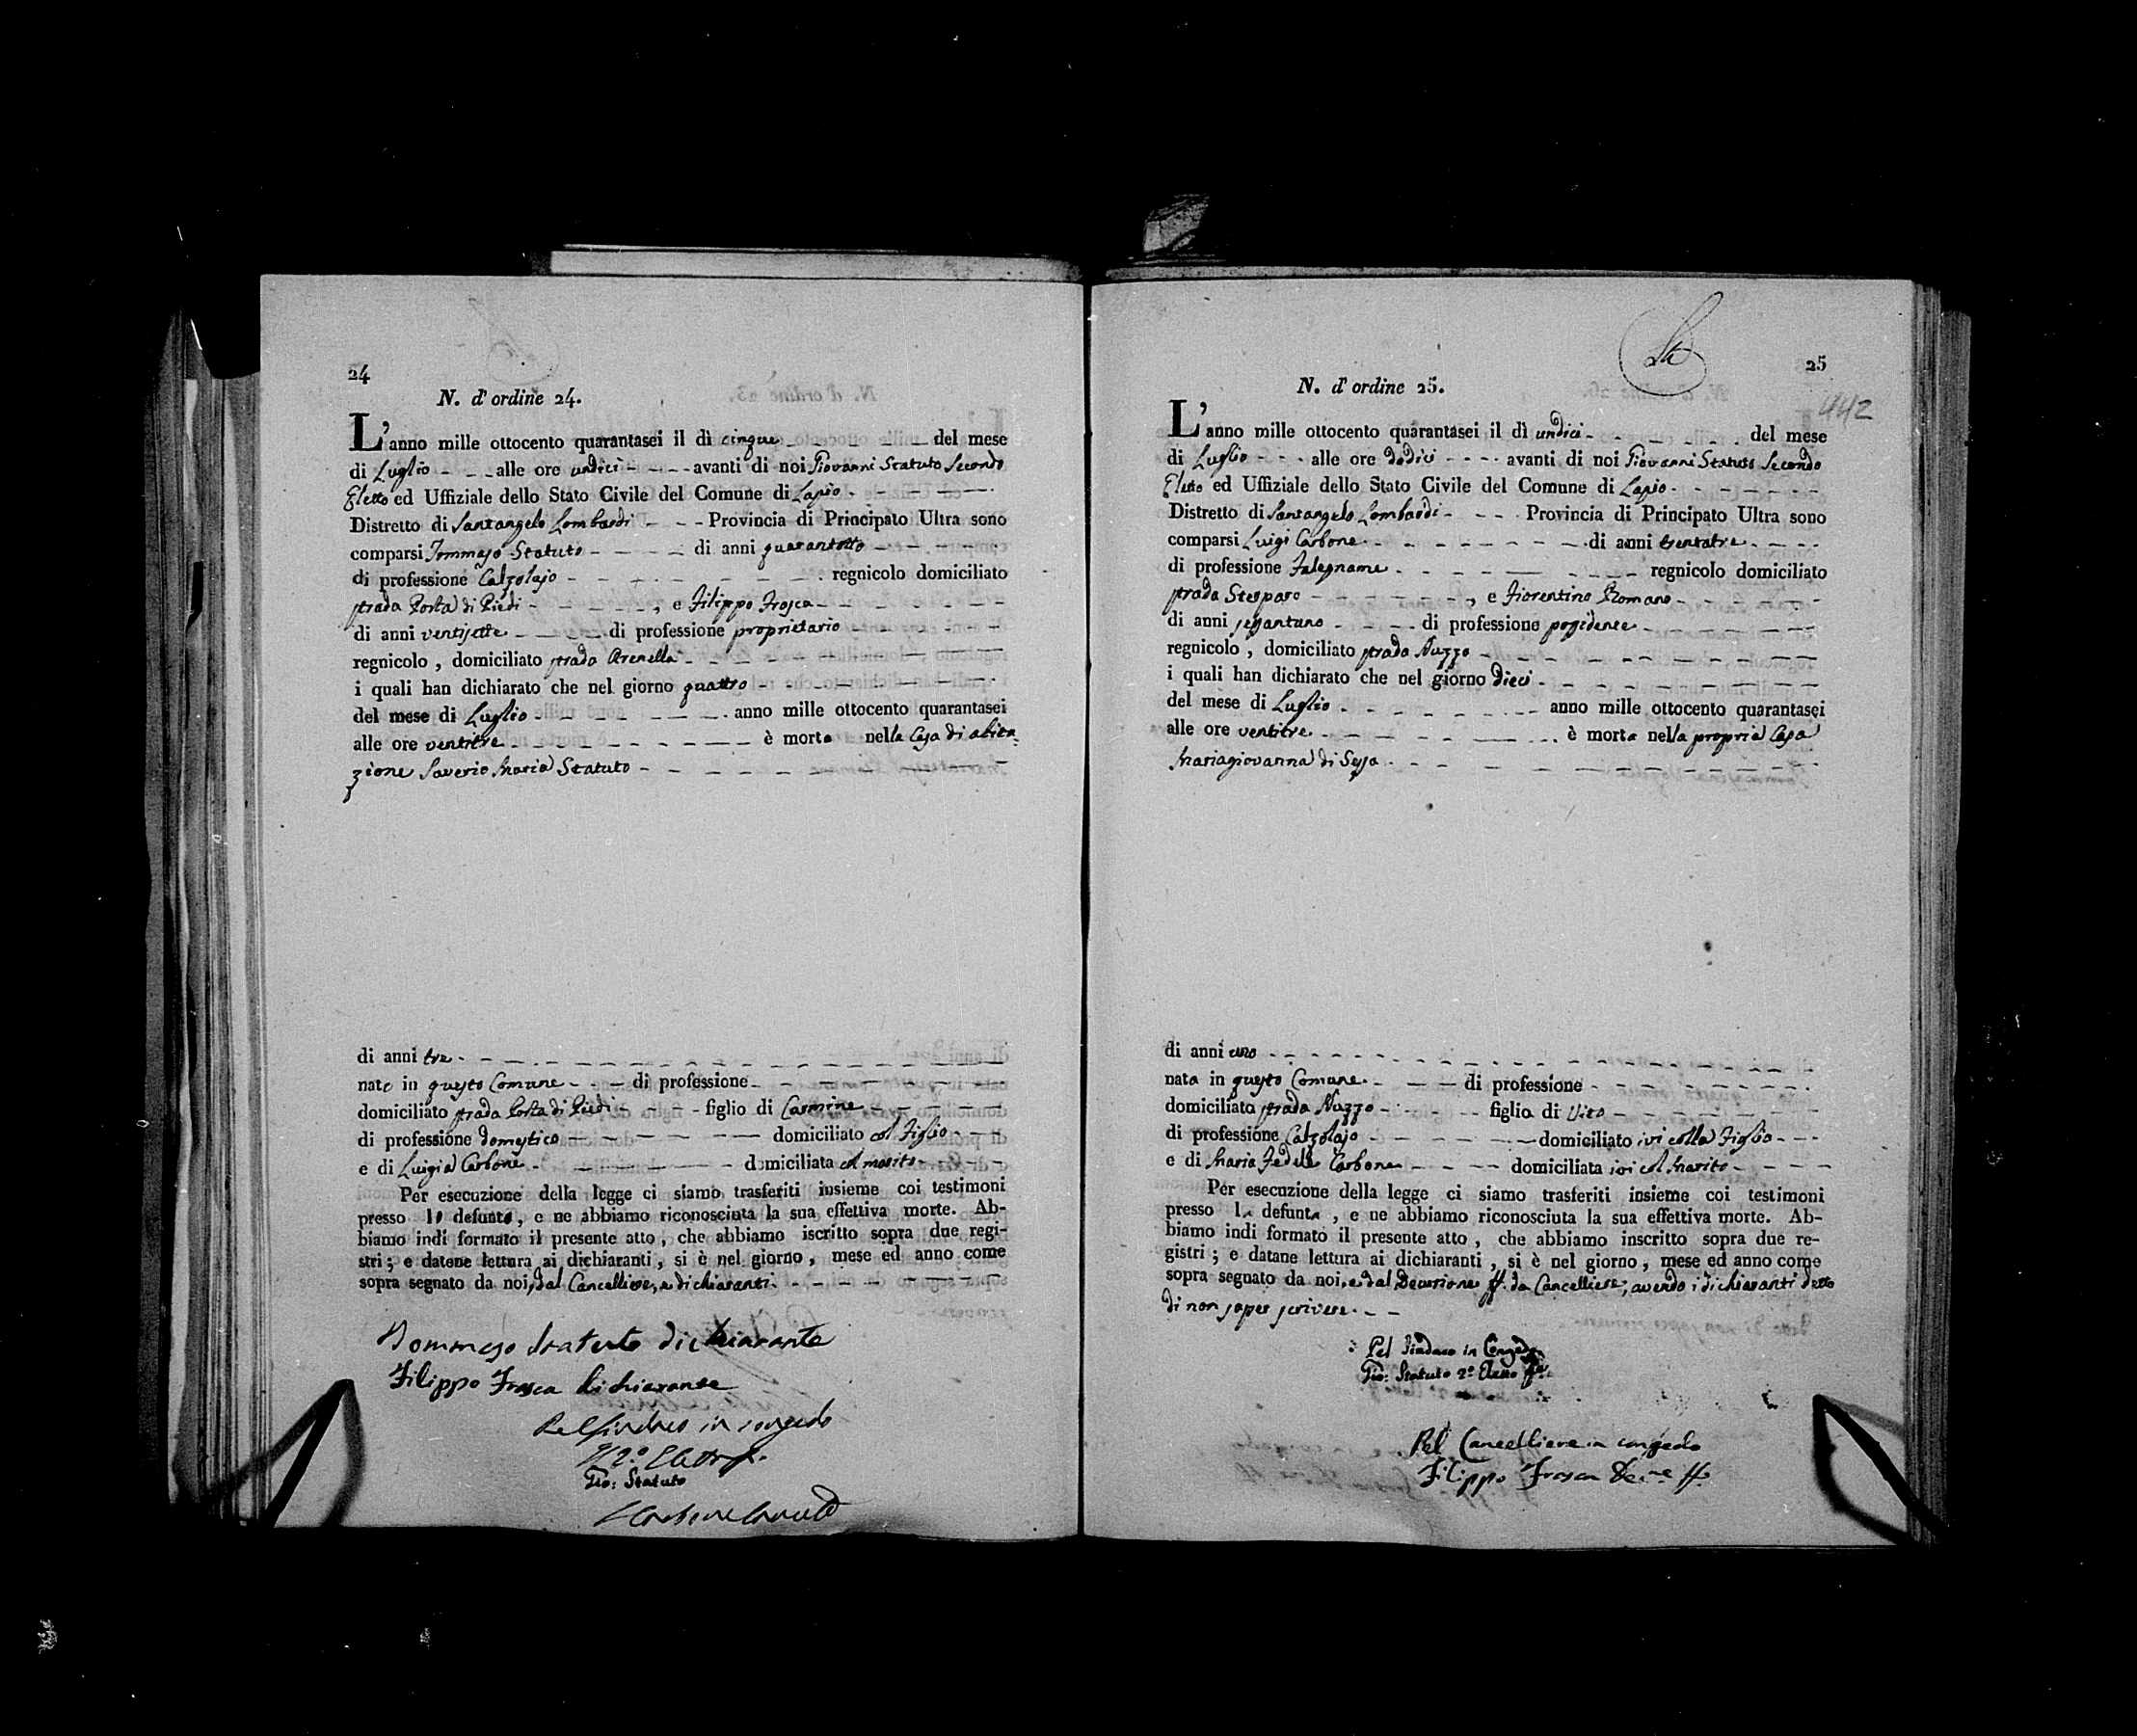 24
N. d' ordine 24.
L'anno mille ottocento quarantasei il dì cinque del mese
di Luglio alle ore undici avanti di noi Giovanni Statuto Secondo
Eletto ed Uffiziale dello Stato Civile del Comune di Lapio
Distretto di Santangelo Lombardi Provincia di Principato Ultra sono
comparsi Tommaso Statuto di anni quarantotto
di professione Calzolajo regnicolo domiciliato
strada Porta di Piedi, e Filippo Frasca
di anni ventisette di professione proprietario
regnicolo, domiciliato strada Arenella
i quali han dichiarato che nel giorno quattro
del mese di Luglio anno mille ottocento quarantasei
alle ore ventitre è morto nella Casa di abita=
zione Saverio Maria Statuto
di anni tre
nato in questo Comune di professione
domiciliato strada Porta di Piedi figlio di Carmine
di professione domestico domiciliato col Figlio
e di Luigia Carbone domiciliata col marito
Per esecuzione della legge ci siamo trasferiti insieme coi testimoni
presso lo defunto, e ne abbiamo riconosciuta la sua effettiva morte. Ab-
biamo indi formato il presente atto, che abbiamo iscritto sopra due regi-
stri; e datene lettura ai dichiaranti, si è nel giorno, mese ed anno come
sopra segnato da noi, dal Cancelliere, e dichiaranti
Tommaso Statuto dichiarante
Filippo Frasca dichiarante
Pel Sindaco in congedo
Il 2º Eletto ff.
Gio: Statuto
25
442
N. d' ordine 25.
L'anno mille ottocento quarantasei il dì undici del mese
di Luglio alle ore dodici avanti di noi Giovanni Statuto Secondo
Eletto ed Uffiziale dello Stato Civile del Comune di Lapio
Distretto di Santangelo Lombardi Provincia di Principato Ultra sono
comparsi Luigi Carbone di anni trentatre
di professione Falegname regnicolo domiciliato
strada Sterparo, e Fiorentino Romano
di anni sessantuno di professione possidente
regnicolo, domiciliato strada Nuzzo
i quali han dichiarato che nel giorno dieci
del mese di Luglio anno mille ottocento quarantasei
alle ore ventitre è morta nella propria Casa
Mariagiovanna di Sessa
di anni uno
nata in questo Comune di professione
domiciliata strada Nuzzo figlia di Vito
di professione Calzolajo domiciliato ivi colla Figlia
e di Maria Fedele Carbone domiciliata ivi col Marito
Per esecuzione della legge ci siamo trasferiti insieme coi testimoni
presso la defunta, e ne abbiamo riconosciuta la sua effettiva morte. Ab-
biamo indi formato il presente atto, che abbiamo inscritto sopra due re-
gistri; e datane lettura ai dichiaranti, si è nel giorno, mese ed anno come
sopra segnato da noi, e dal Decurione ff. da Cancelliere, avendo i dichiaranti detto
di non saper scrivere.
Pel Sindaco in Congedo
Gio: Statuto 2º Eletto ff.
Pel Cancelliere in congedo
Filippo Frasca Dec.ne ff.